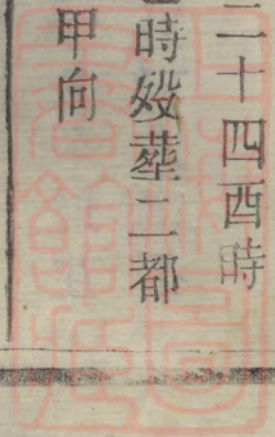 二十四酉時
時歿塟二都
甲向